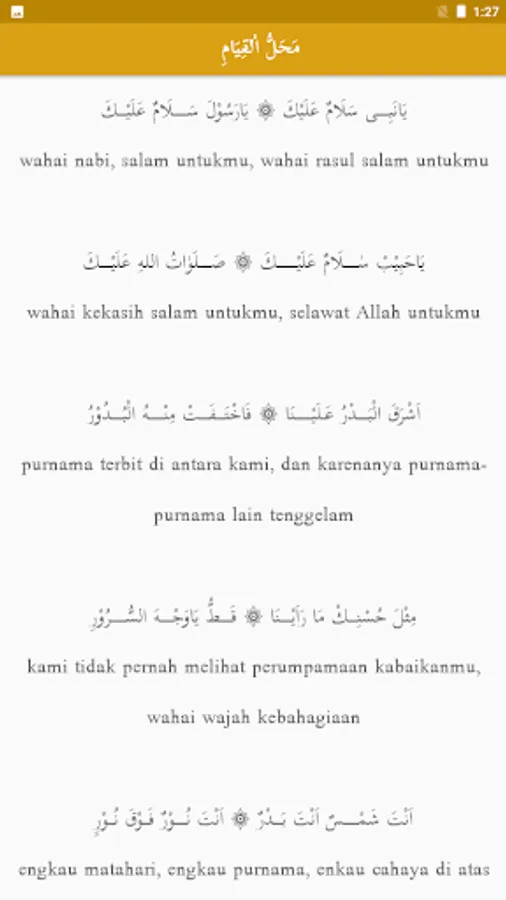 1:27
مَحَلُّ اْلقِيَامِ
يَانَبِى سَلَامٌ عَلَيْكَ ۞ يَارَسُوْلَ سَـــلَامٌ عَلَيْــكَ
wahai nabi, salam untukmu, wahai rasul salam untukmu
يَاحَبِيْبْ سَـــلَامٌ عَلَيْـــــكَ ۞ صَـــلَوَاتُ اللهِ عَلَيْـــكَ
wahai kekasih salam untukmu, selawat Allah untukmu
اَشْرَقَ الْبَـــدْرُ عَـلَيْـــــنَا ۞ فَاخْتَــفَــتْ مِنْـــهُ الْبُـــدُوْرُ
purnama terbit di antara kami, dan karenanya purnama-
purnama lain tenggelam
مِثْلَ حُسْنِــكْ مَا رَاَيْـــنَا ۞ قَــطُّ يَاوَجْــهَ السُّـــرُوْرِ
kami tidak pernah melihat perumpamaan kabaikanmu,
wahai wajah kebahagiaan
اَنْتَ شَمْـــسٌ اَنْتَ بَـدْرٌ ۞ اَنْتَ نُـــوْرٌ فَـوْقَ نُـــوْرٍ
engkau matahari, engkau purnama, enkau cahaya di atas